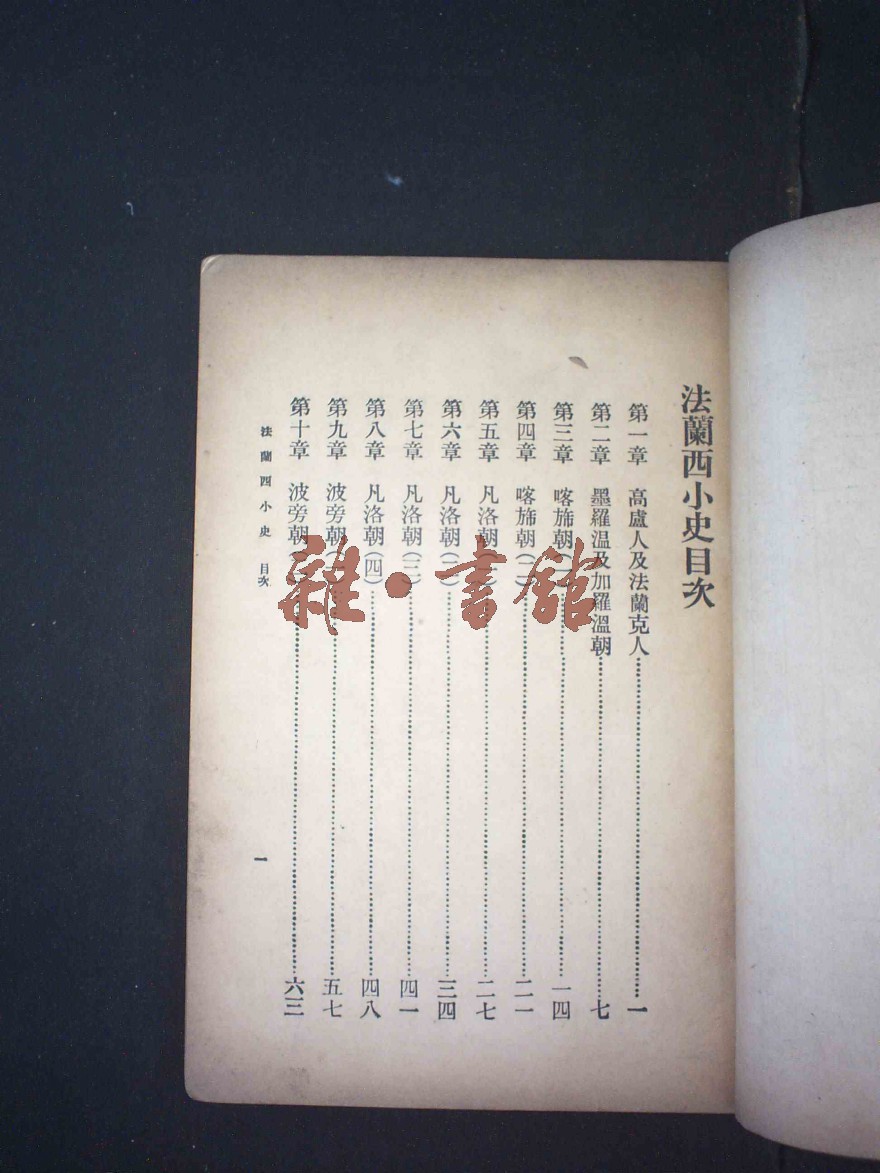 法蘭西小史目次
第一章 高盧人及法蘭克人……一
第二章 墨羅溫及加羅溫朝……七
第三章 喀斾朝(一)……一四
第四章 喀斾朝(二)……二一
第五章 凡洛朝(一)……二七
第六章 凡洛朝(二)……三四
第七章 凡洛朝(三)……四一
第八章 凡洛朝(四)……四八
第九章 波旁朝(一)……五七
第十章 波旁朝(二)……六三
法蘭西小史 目次
一
雜·書館